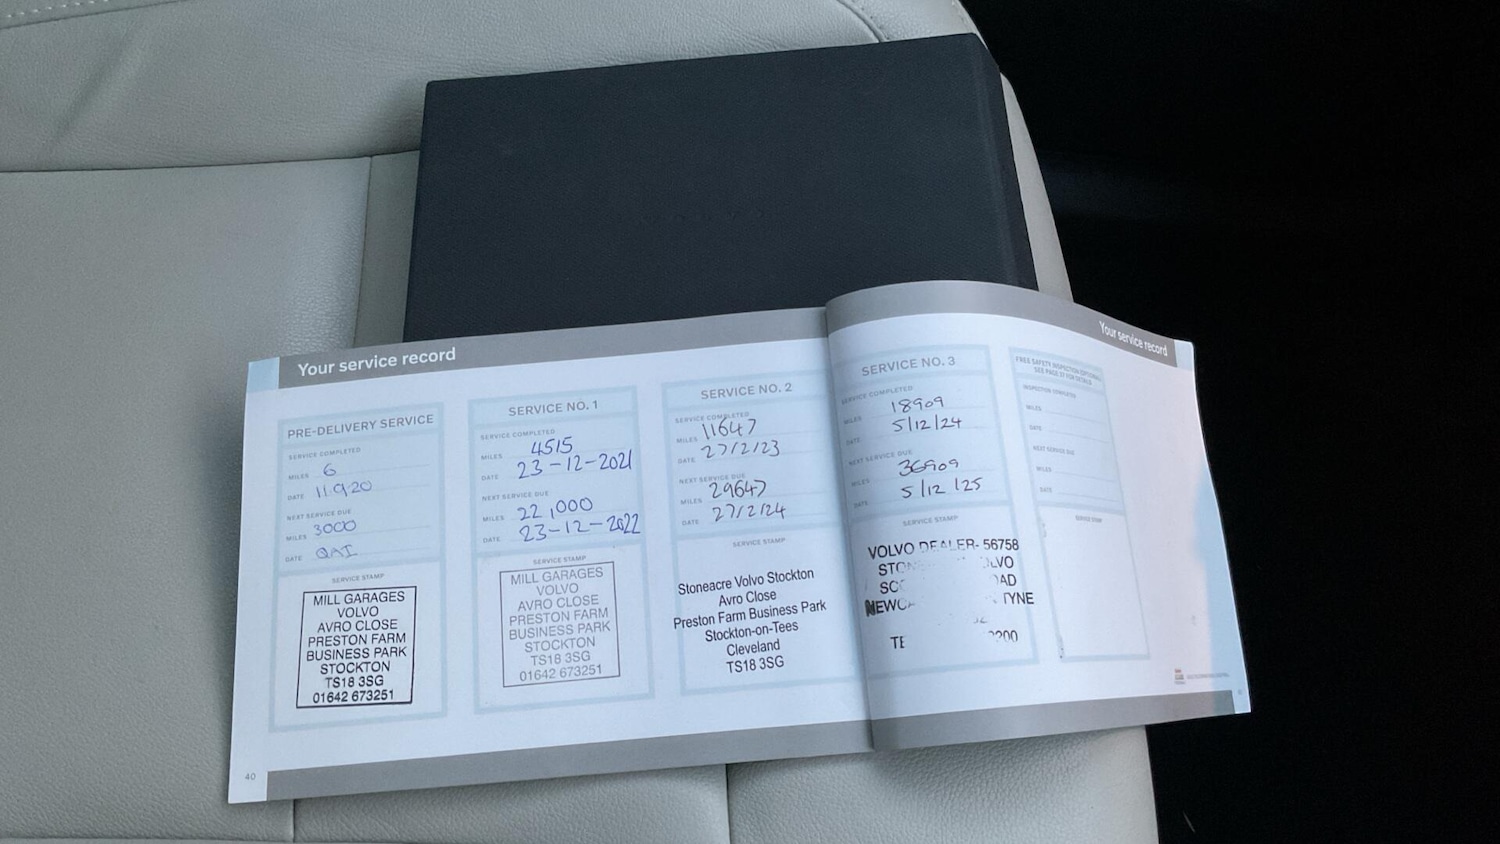 VOLVO
Your service record
PRE-DELIVERY SERVICE
SERVICE COMPLETED
MILES 6
DATE 11.9.20
NEXT SERVICE DUE
MILES 3000
DATE
SERVICE STAMP
MILL GARAGES
VOLVO
AVRO CLOSE
PRESTON FARM
BUSINESS PARK
STOCKTON
TS18 3SG
01642 673251
40
SERVICE NO. 1
SERVICE COMPLETED
MILES 4515
DATE 23-12-2021
NEXT SERVICE DUE
MILES 22,000
DATE 23-12-2022
SERVICE STAMP
MILL GARAGES
VOLVO
AVRO CLOSE
PRESTON FARM
BUSINESS PARK
STOCKTON
TS18 3SG
01642 673251
SERVICE NO. 2
SERVICE COMPLETED
MILES 11647
DATE 27/2/23
NEXT SERVICE DUE
MILES 29647
DATE 27/2/24
SERVICE STAMP
Stoneacre Volvo Stockton
Avro Close
Preston Farm Business Park
Stockton-on-Tees
Cleveland
TS18 3SG
Your service record
SERVICE NO. 3
SERVICE COMPLETED
MILES 18909
DATE 5/12/24
NEXT SERVICE DUE
MILES 36909
DATE 5/12/25
SERVICE STAMP
VOLVO DEALER- 56758
FREE SAFETY INSPECTION (OPTIONAL)
SEE PAGE 37 FOR DETAILS
INSPECTION COMPLETED
MILES
DATE
NEXT SERVICE DUE
MILES
DATE
SERVICE STAMP